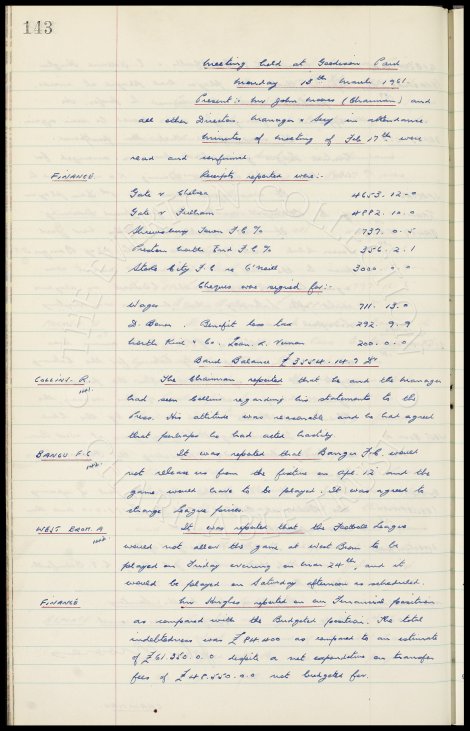 143
Meeting held at Goodison Park
Monday 13th March 1961.
Present :- Mr John Moores (Chairman) and
all other Directors. Manager & Secy in attendance.
Minutes of meeting of Feb 17th were
read and confirmed.
FINANCE. Receipts reported were :-
Gate v Chelsea 4653. 12. 0
Gate v Fulham 4882. 10. 0
Shrewsbury Town F.C. % 737. 0. 5
Preston North End F.C. % 356. 2. 1
Stoke City F.C. re O'Neill 3000. 0. 0
Cheques were signed for :-
Wages 711. 13. 0
Benefit less tax 292. 9. 9
North Kirk & Co. Loan. R. Vernon 200. 0. 0
Bank Balance £ 35554. 14. 9 Dr
COLLINS. R. The Chairman reported that he and the Manager
had seen Collins regarding his statements to the
Press. His attitude was reasonable and he had agreed
that perhaps he had acted hastily.
BANGU F.C. It was reported that Bangu F.C. would
not release us from the fixture on Apl. 12 and the
game would have to be played. It was agreed to
charge League prices.
WEST BROM. A It was reported that the Football League
would not allow the game at West Brom to be
played on Friday evening on Mar 24th, and it
would be played on Saturday afternoon as scheduled.
FINANCE Mr Hughes reported on our Financial position
as compared with the Budgeted position. The total
indebtedness was £ 84,400 as compared to an estimate
of £ 61.250. 0. 0 despite a net expenditure on transfer
fees of £ 48.550. 0. 0 not budgeted for.